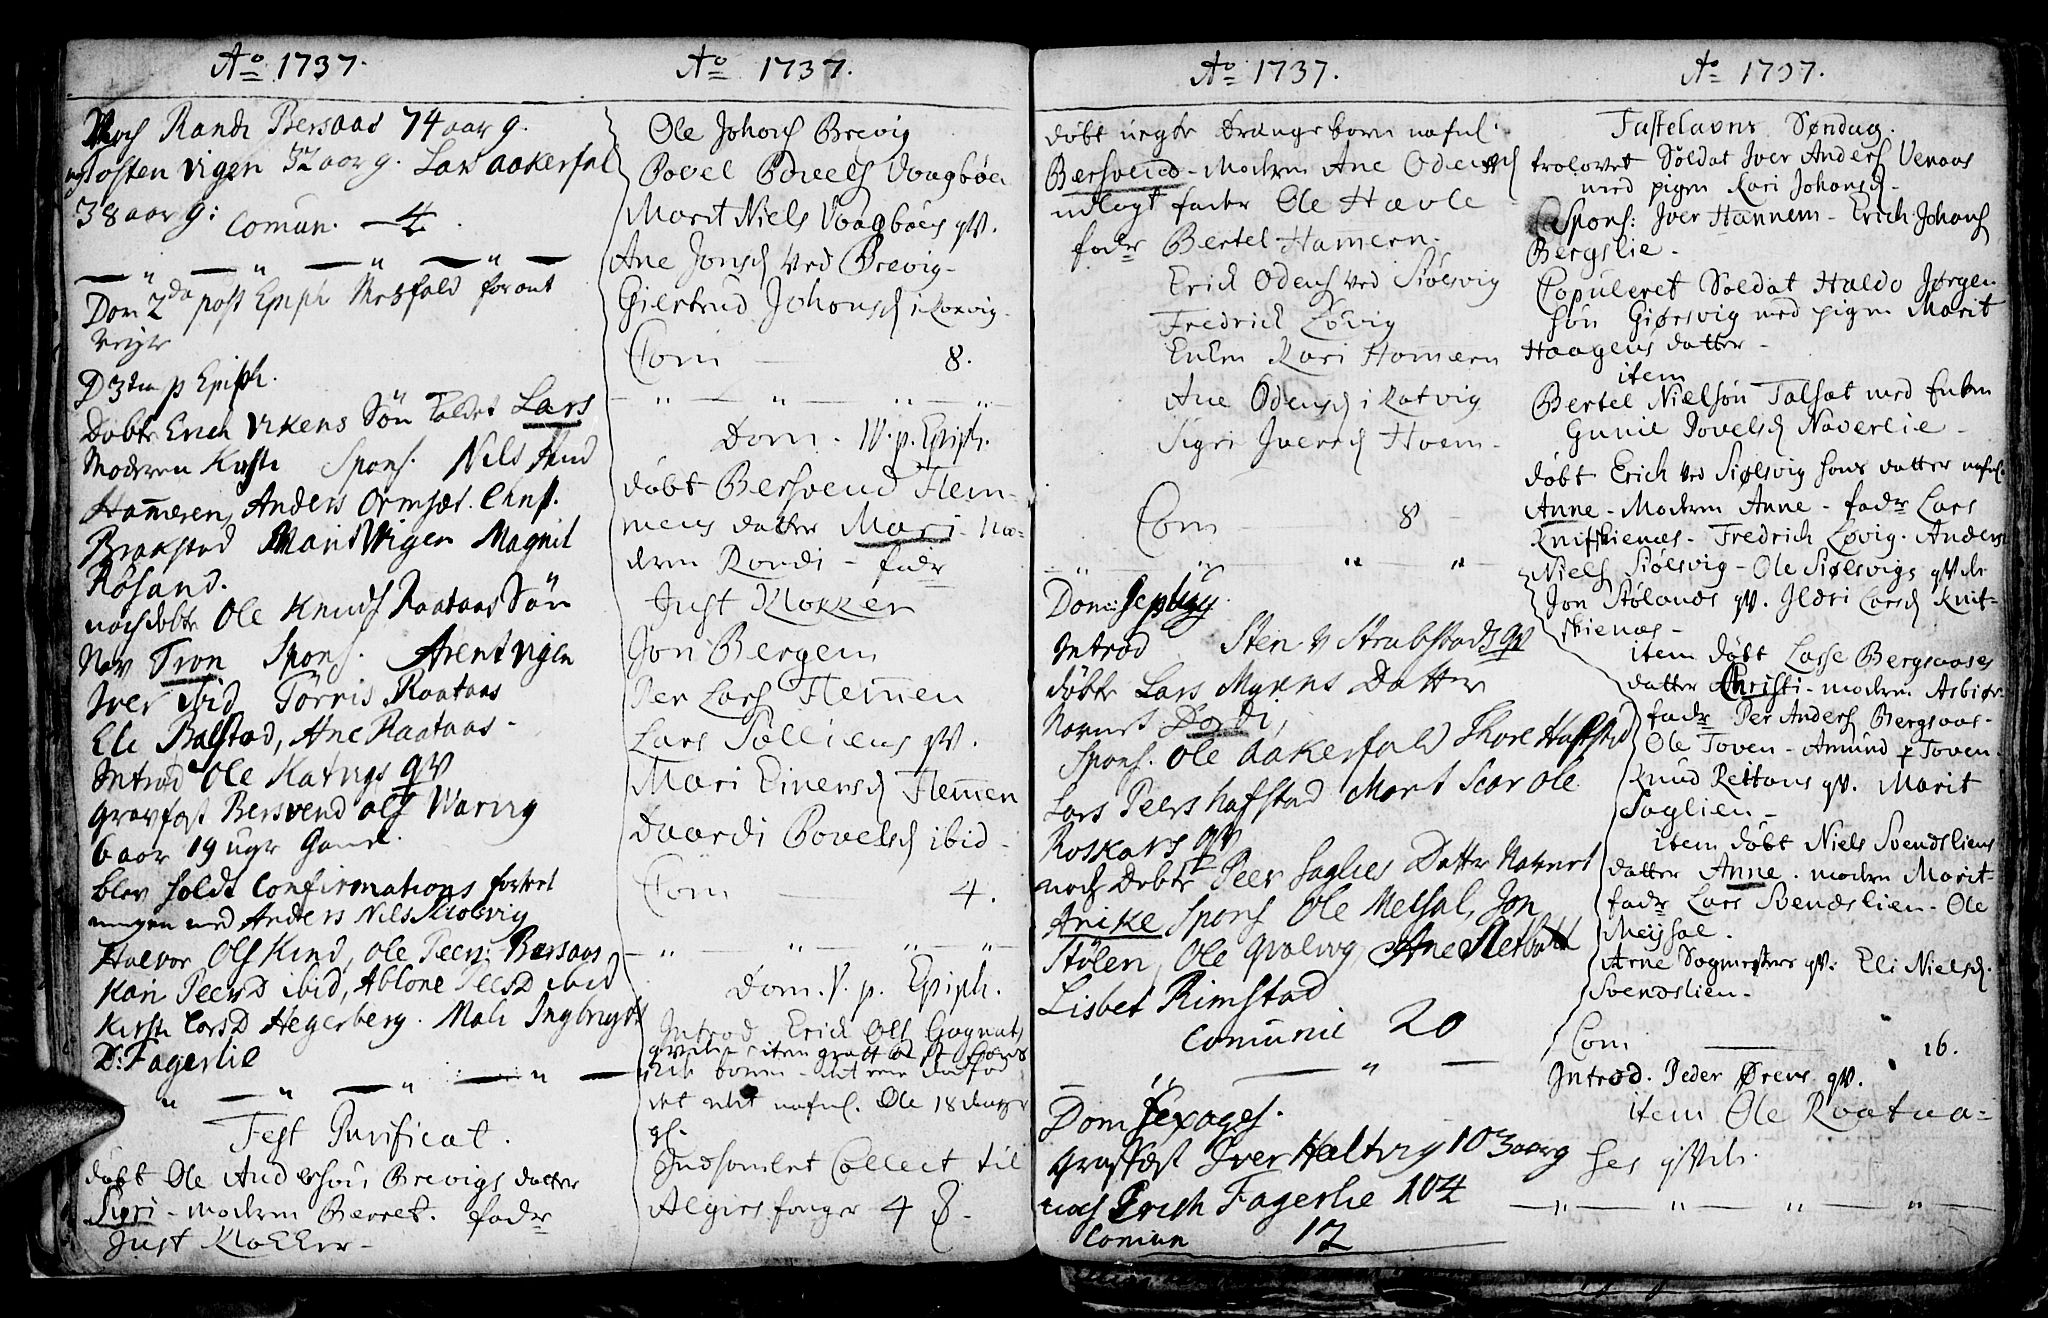 Ao 1737.
Noch Randi Bersaas 74 aar g.
Tosten Vigen 32 aar g. Lars Aakerfal
38 aar g: Comun. 4.
Dom 2da post Epiph Mesfald foront
D 3tia p Epiph.
Døbte Erich Vikens Søn Kaldet Lars
Moderen Kirsti Spons. Nils
Hammeren, Anders Ormset.
Brakstad Marit Vigen Magnil
Røsand.
noch døbte Ole Knuds Raataas Søn
Nav Tron Spons. Arent Vigen
Iver ibid Törris Raataas
Eli Balstad, Ane Raataas -
Introd Ole Katvigs qv
gravfæst Bersvend Ols Warvig
6 aar 19 ugr Gaml.
blev holdt Confirmations forret
ningen med Anders Nils Siolsvig
Halvor Ols Kind, Ole Peers: Bersaas
Kari PeersD ibid, Ablone PeersD ibid
Kirsti LarsD Hegerberg. Mali Ingbrigts
D: Fagerlie
Fest Purificat.
døbt Ole Andersøn Brevigs datter
Sigri - modern Berret. fadr
Just Klokker -
Ao 1737.
Ole Johans Brevig
Povel Povels Vaagbøen
Marit Niels Vaagbøes qv.
Ane Jonsd ved Brevig -
Giertrud Johansd i Korvig.
Com 8.
Dom. IV. p. Epiph.
døbt Bersvend Hem-
mens datter Mari - Mo-
deren Randi - fadr
Just Klokker
Jon Bergem
Per Lars Hemmen
Lars Sølliens qv.
Mari Einersd Hemmen
Daardi Povelsd ibid -
Com 4.
Dom. V. p. Epiph.
Introd Erich Ols Gagnats
det nafnl. Ole 18 dager
gl.
Indsamlet Collect til
Algiers fanger 4 ß.
Ao 1737.
døbt uegte drængebarn nafnl.
Bersvend - Modern Ane Odensd
udlagt fader Ole Hævle
fadr Bertel Hamern -
Erich Odens ved Siølsvig
Fredrich Løvig
Enken Kari Hamern
Ane Odensd i Katvig
Sigri Iversd Hoem -
Com 8
Dom: Septuag.
Introd Sten v Strabstads qv
døbte Lars Myrens Datter
Navnet Dordi,
Spons. Ole Aakerfald Thore Hafstad
Lars Peers Hafstad Marit Scar Ole
Roskars qv
noch Døbte Peer Saglies Datter Navnet
Anike Spons Ole Melsal, Jon
Stølen, Ole Qvalvog Ane
Lisbet Rimstad
Comunic 20
Dom Sexages.
gravfæst Iver Haltvig 103 aar g
noch Erich Fagerlie 104
Comun 12
Ao 1737.
Fastelavns Søndag.
trolovet Soldat Iver Anders Venaas
med pigen Kari Johansd -
Spons: Iver Hannem - Erich Johans
Bergslie -
Copuleret Soldat Haldo Jørgen
søn Giørsvig med pigen Marit
Haagens datter -
item
Bertel Nielsøn Talsæt med Enken
Gunil Povelsd Naverlie -
døbt Erich ved Siølsvig hans datter nafnl.
Anne - Modern Anne - fadr Lars
Knifskienæs - Fredrich Løvig - Anders
Niels Siølsvig - Ole Siølsvigs qv
Jon Stølands qv. Ildri Larsd Knif-
skienæs -
item døbt Lasse Bergsaases
datter Christi - modern Asbiør -
fadr Per Anders Bergsaas -
Ole Toven - Amund Toven
Knud Reitans qv. Marit
Saglien -
item døbt Niels Svendsliens
datter Anne - modern Marit -
fadr Lars Svendslien - Ole
Meysal.
Arne qv. Eli Nielsd.
Svendslien -
Com 16.
Introd. Peder Ørens qv.
item Ole Raataa-
ses qv